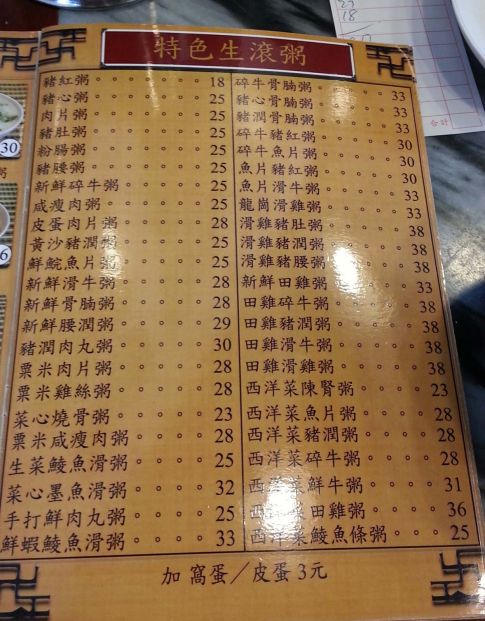 特色生滾粥
豬紅粥。。。。。。18
豬心粥。。。。。。25
肉片粥。。。。。。25
豬肚粥。。。。。。25
粉腸粥。。。。。。25
豬腰粥。。。。。。25
新鮮碎牛粥。。。。25
咸瘦肉粥。。。。。25
皮蛋肉片粥。。。。28
黃沙豬潤粥。。。。25
鮮鯇魚片粥。。。。25
新鮮滑牛粥。。。。28
新鮮骨腩粥。。。。28
新鮮腰潤粥。。。。29
豬潤肉丸粥。。。。30
粟米肉片粥。。。。28
粟米雞絲粥。。。。28
菜心燒骨粥。。。。23
粟米咸瘦肉粥。。。28
生菜鯪魚滑粥。。。25
菜心墨魚滑粥。。。32
手打鮮肉丸粥。。。25
鮮蝦鯪魚滑粥。。。33
碎牛骨腩粥。。。。33
豬心骨腩粥。。。。33
豬潤骨腩粥。。。。33
碎牛豬紅粥。。。。30
碎牛魚片粥。。。。30
魚片豬紅粥。。。。30
魚片滑牛粥。。。。33
龍崗滑雞粥。。。。33
滑雞豬肚粥。。。。38
滑雞豬潤粥。。。。38
滑雞豬腰粥。。。。38
新鮮田雞粥。。。。38
田雞碎牛粥。。。。38
田雞豬潤粥。。。。38
田雞滑牛粥。。。。38
田雞滑雞粥。。。。38
西洋菜陳腎粥。。。23
西洋菜魚片粥。。。28
西洋菜豬潤粥。。。28
西洋菜碎牛粥。。。28
西洋菜鮮牛粥。。。31
西洋菜田雞粥。。。36
西洋菜鯪魚條粥。。25
加 窩蛋／皮蛋 3元
30
粥
6
18
合計